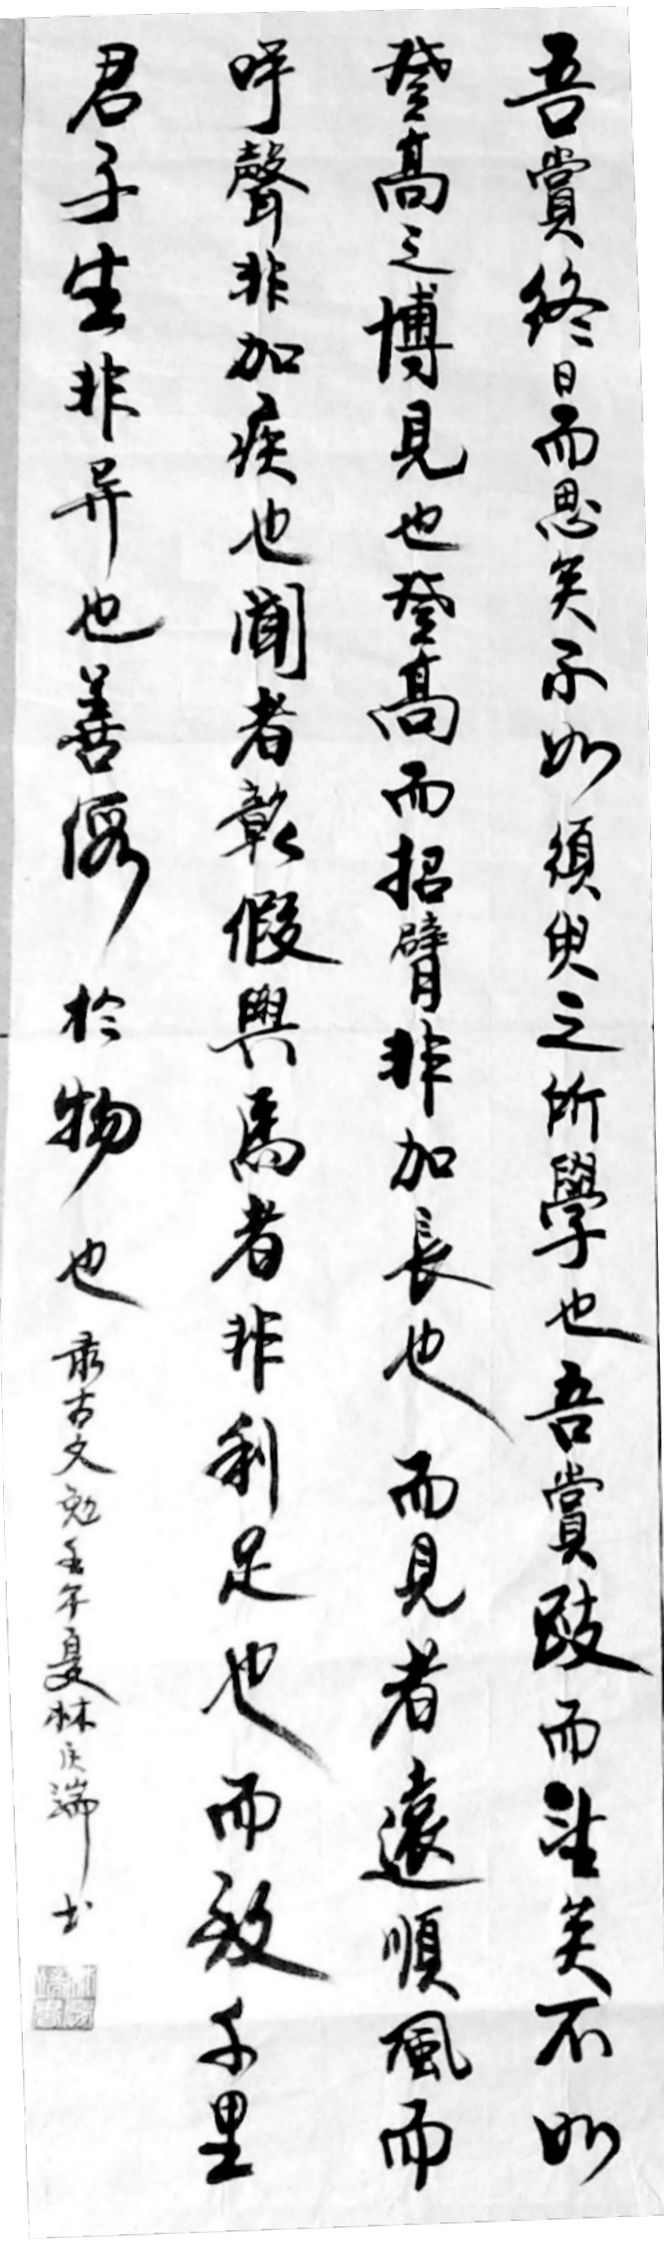 吾賞終日而思矣不如須臾之所學也吾賞跂而望矣不如
登高之博見也登高而招臂非加長也而見者遠順風而
呼聲非加疾也聞者彰假輿馬者非利足也而致千里
君子生非异也善假於物也
录古文勉壬午夏林庆端书